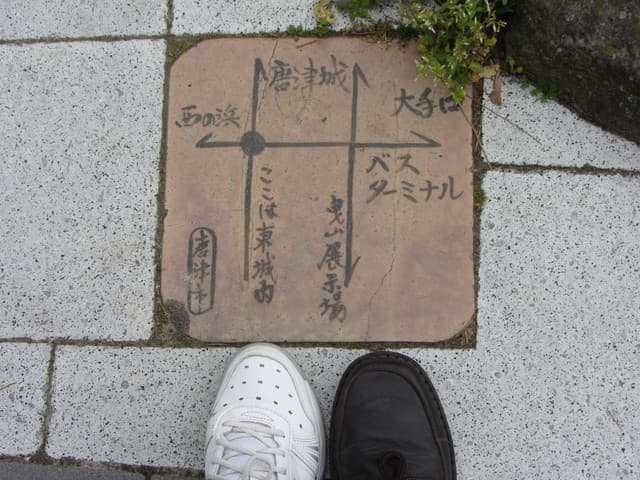 唐津城
西の浜
大手口
バス
ターミナル
ここは東城内
曳山展示場
唐津市